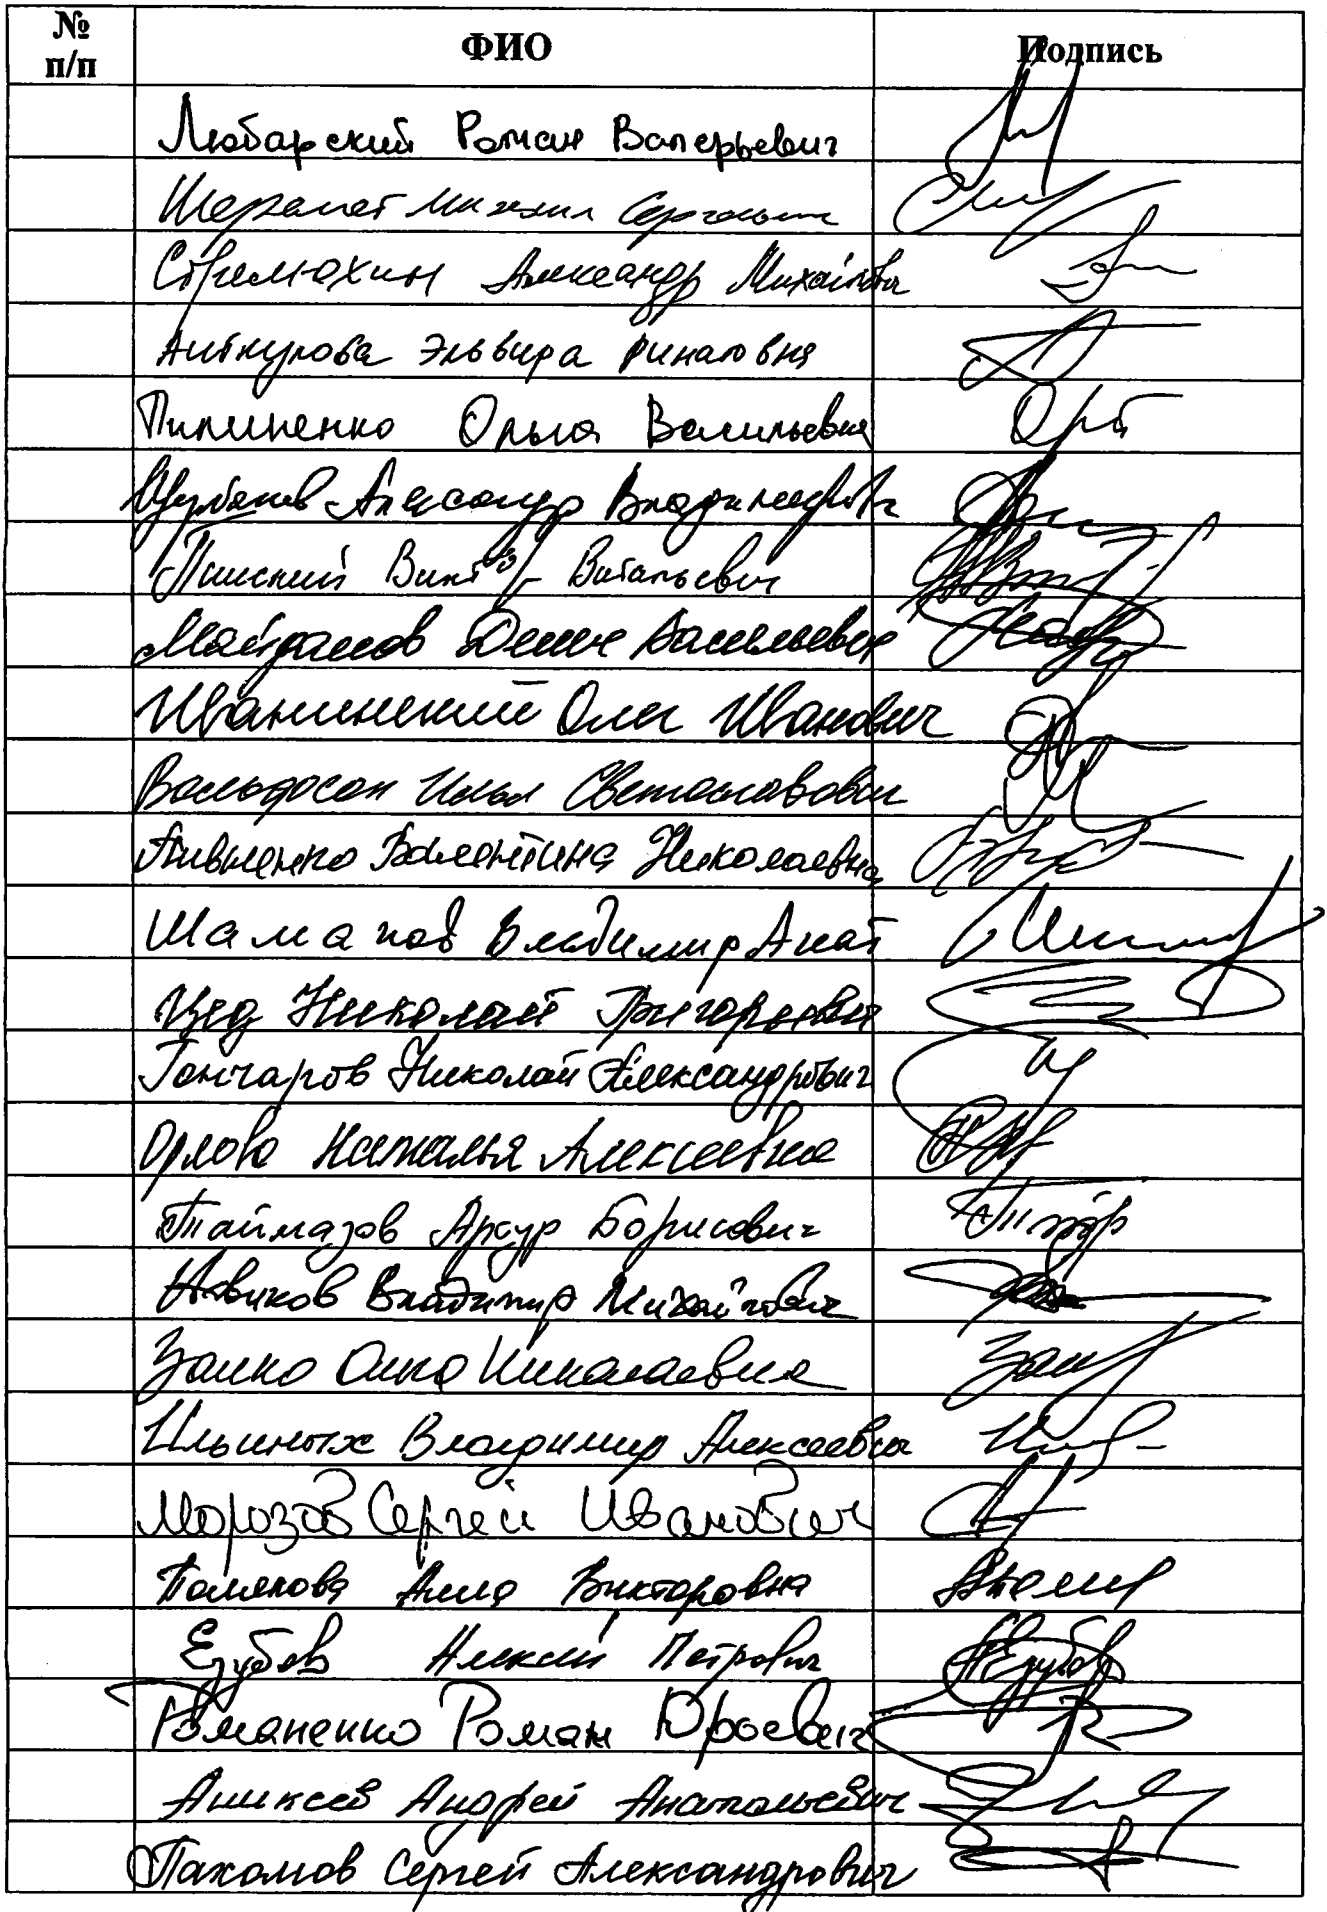 № п/п ФИО Подпись
Любарский Роман Валерьевич
Шеремет Михаил Сергеевич
Стремохин Александр Михайлович
Аиткулова Эльвира Ринатовна
Пилипенко Ольга Васильевна
Щербаков Александр Владимирович
Пинский Виктор Витальевич
Майданов Денис Васильевич
Иванинский Олег Иванович
Вольфсон Илья Светославович
Пивненко Валентина Николаевна
Шаманов Владимир Анат
Цед Николай Григорьевич
Гончаров Николай Александрович
Орлова Наталья Алексеевна
Таймазов Артур Борисович
Новиков Владимир Михайлович
Заико Николаевна
Ильиных Владимир Алексеевич
Морозов Сергей Иванович
Полякова Алла Викторовна
Езубов Алексей Петрович
Романенко Роман Юрьевич
Аникеев Андрей Анатольевич
Пахомов Сергей Александрович